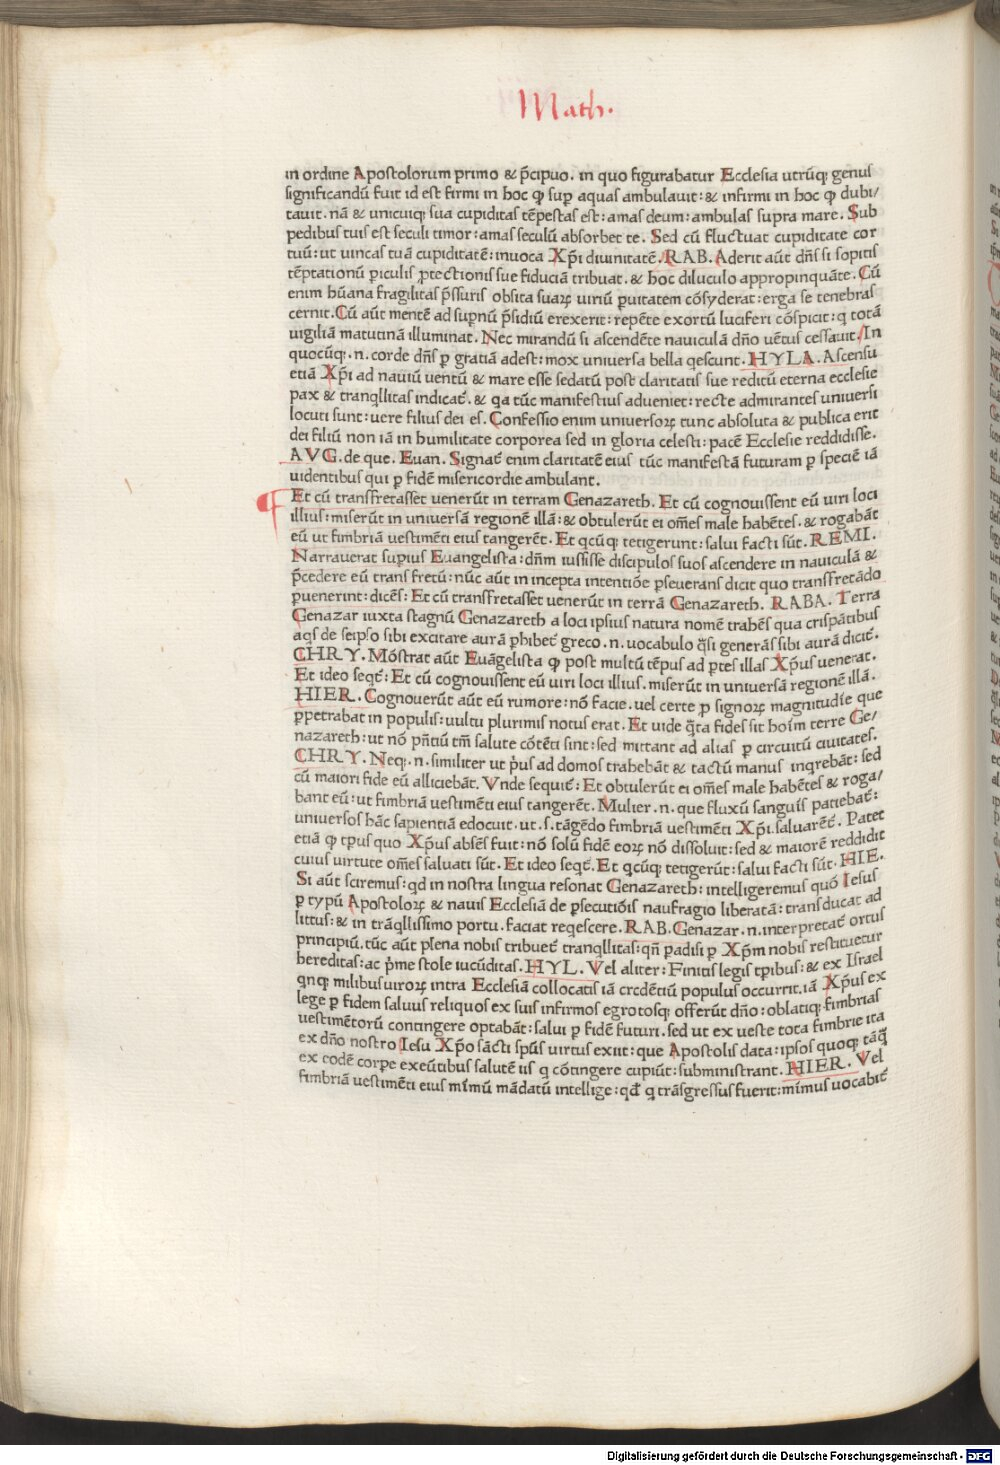 Math.
in ordine Apostolorum primo & p̄cipuo. in quo figurabatur Ecclesia utrūq; genus
significandū fuit id est firmi in hoc ꝙ sup̱ aquas ambulauit: & infirmi in hoc ꝙ dubi/
tauit. nā & unicuiq; sua cupiditas tēpestas est: amas deum: ambulas supra mare. Sub
pedibus tuis est seculi timor: amas seculū absorbet te. Sed cū fluctuat cupiditate cor
tuū: ut uincas tuā cupiditatē: inuoca Xp̄i diuinitatē. RAB. Aderit aūt dn̄s si sopitis
tēptationū ꝑiculis ꝓtectionis sue fiduciā tribuat. & hoc diluculo appropinquāte. Cū
enim hūana fragilitas p̄ssuris obsita suaꝝ uiriū ꝑuitatem cōsyderat: erga se tenebras
cernit. Cū aūt mentē ad sup̱nū p̄sidiū erexerit: repēte exortū luciferi cōspicit: q totā
uigiliā matutinā illuminat. Nec mirandū si ascendēte nauiculā dn̄o uētus cessauit. In
quocūq; .n. corde dn̄s ꝑ gratiā adest: mox uniuersa bella qescunt. HYLA. Ascensu
etiā Xp̄i ad nauiū uentū & mare esse sedatū post claritatis sue reditū eterna ecclesie
pax & tranqllitas indicat̄. & qa tūc manifestius adueniet: recte admirantes uniuersi
locuti sunt: uere filius dei es. Confessio enim uniuersoꝝ tunc absoluta & publica erit
dei filiū non iā in humilitate corporea sed in gloria celesti: pacē Ecclesie reddidisse.
AVG. de que. Euan. Signat̄ enim claritatē eius tūc manifestā futuram ꝑ speciē iā
uidentibus qui ꝑ fidē misericordie ambulant.
Et cū transfretasset uenerūt in terram Genazareth. Et cū cognouissent eū uiri loci
illius: miserūt in uniuersā regionē illā: & obtulerūt ei om̄es male habētes. & rogabāt
eū ut fimbriā uestimēti eius tangerēt. Et qcūq; tetigerunt: salui facti sūt. REMI.
Narrauerat supius Euangelista: dn̄m iussisse discipulos suos ascendere in nauiculā &
p̄cedere eū trans fretū: nūc aūt in incepta intentiōe ꝑseuerans dicit quo transfretādo
ꝑuenerint: dicēs: Et cū transfretasset uenerūt in terrā Genazareth. RABA. Terra
Genazar iuxta stagnū Genazareth a loci ipsius natura nomē trahēs qua crispātibus
aqs de seipso sibi excitare aurā ꝑhibet̄ greco .n. uocabulo q̄si generās sibi aurā dicit̄.
CHRY. Mōstrat aūt Euāgelista ꝙ post multū tēpus ad ꝑtes illas Xp̄us uenerat.
Et ideo seqt̄: Et cū cognouissent eū uiri loci illius. miserūt in uniuersā regionē illā.
HIER. Cognouerūt aūt eū rumore: nō facie. uel certe ꝑ signoꝝ magnitudīe que
ꝑpetrabat in populis: uultu plurimis notus erat. Et uide q̄ta fides sit hoīm terre Ge/
nazareth: ut nō pn̄tiū tm̄ salute cōtēti sint: sed mittant ad alias ꝑ circuitū ciuitates.
CHRY. Neq; .n. similiter ut p̄us ad domos trahebāt & tactū manus inqrebāt: sed
cū maiori fide eū alliciebāt. Vnde sequit̄: Et obtulerūt ei om̄es male habētes & roga/
bant eū: ut fimbriā uestimēti eius tangerēt. Mulier .n. que fluxū sanguīs patiebat̄:
uniuersos hāc sapientiā edocuit. ut .s. tāgēdo fimbriā uestimēti Xp̄i. saluarēt̄. Patet
etiā ꝙ tp̄us quo Xp̄us absēs fuit: nō solū fidē eoꝝ nō dissoluit: sed & maiorē reddidit
cuius uirtute om̄es saluati sūt. Et ideo seqt̄. Et qcūq; tetigerūt: salui facti sūt. HIE.
Si aūt sciremus: qd in nostra lingua resonat Genazareth: intelligeremus quō Iesus
ꝑ typū Apostoloꝝ & nauis Ecclesiā de ꝑsecutiōis naufragio liberatā: transducat ad
littus: & in trāqllissimo portu. faciat reqescere. RAB. Genazar .n. interpretat̄ ortus
principiū. tūc aūt plena nobis tribuet̄ tranqllitas: qn̄ ꝑadisi ꝑ Xp̄m nobis restituetur
hereditas: ac p̄me stole iucūditas. HYL. Vel aliter: Finitis legis tp̄ibus: & ex Israel
qnq; milibus uiroꝝ intra Ecclesiā collocatis iā credētiū populus occurrit. iā Xp̄us ex
lege ꝑ fidem saluus reliquos ex suis infirmos egrotosq; offerūt dn̄o: oblatiq; fimbrias
uestimētorū contingere optabāt: salui ꝑ fidē futuri. sed ut ex ueste tota fimbrie ita
ex dn̄o nostro Iesu Xp̄o sācti sp̄us uirtus exiit: que Apostolis data: ipsos quoq; tāq̄
ex eodē corpe exeūtibus salutē iis q cōtingere cupiūt: subministrant. HIER. Vel
fimbriā uestimēti eius mīmū mādatū intellige: qd̄ q trāsgressus fuerit: mīmus uocabit̄
Digitalisierung gefördert durch die Deutsche Forschungsgemeinschaft - DFG